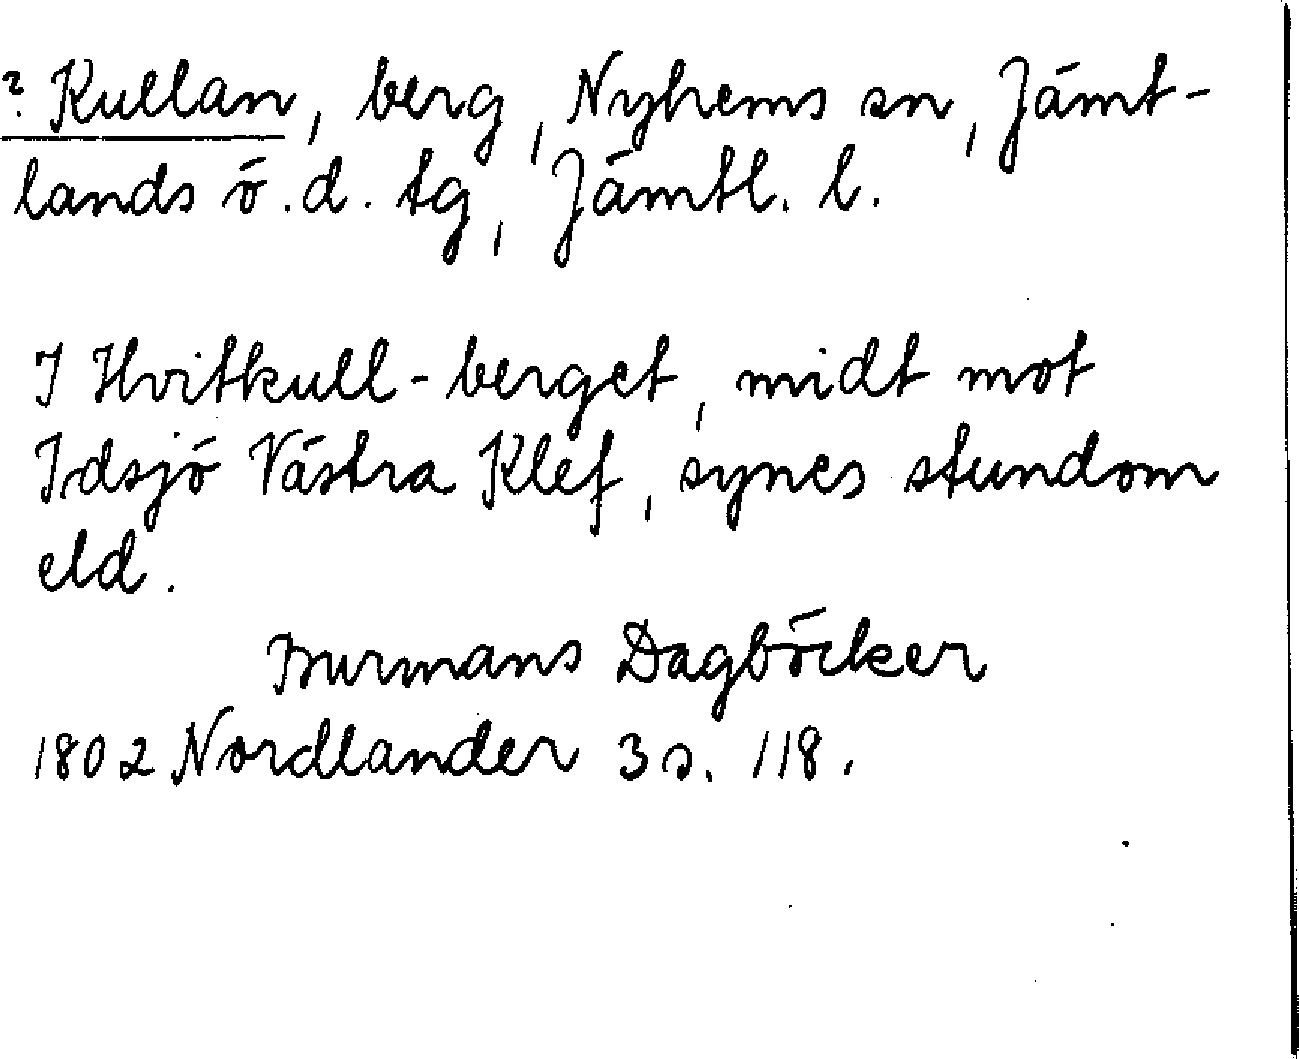 ? Kullan, berg, Nyhems sn, Jämt-
lands ö. d. tg, Jämtl. l.
I Hvitkull-berget, midt mot
Idsjö Västra Klef, synes stundom
eld.
Burmans Dagböcker
1802 Nordlander 3 s. 118.